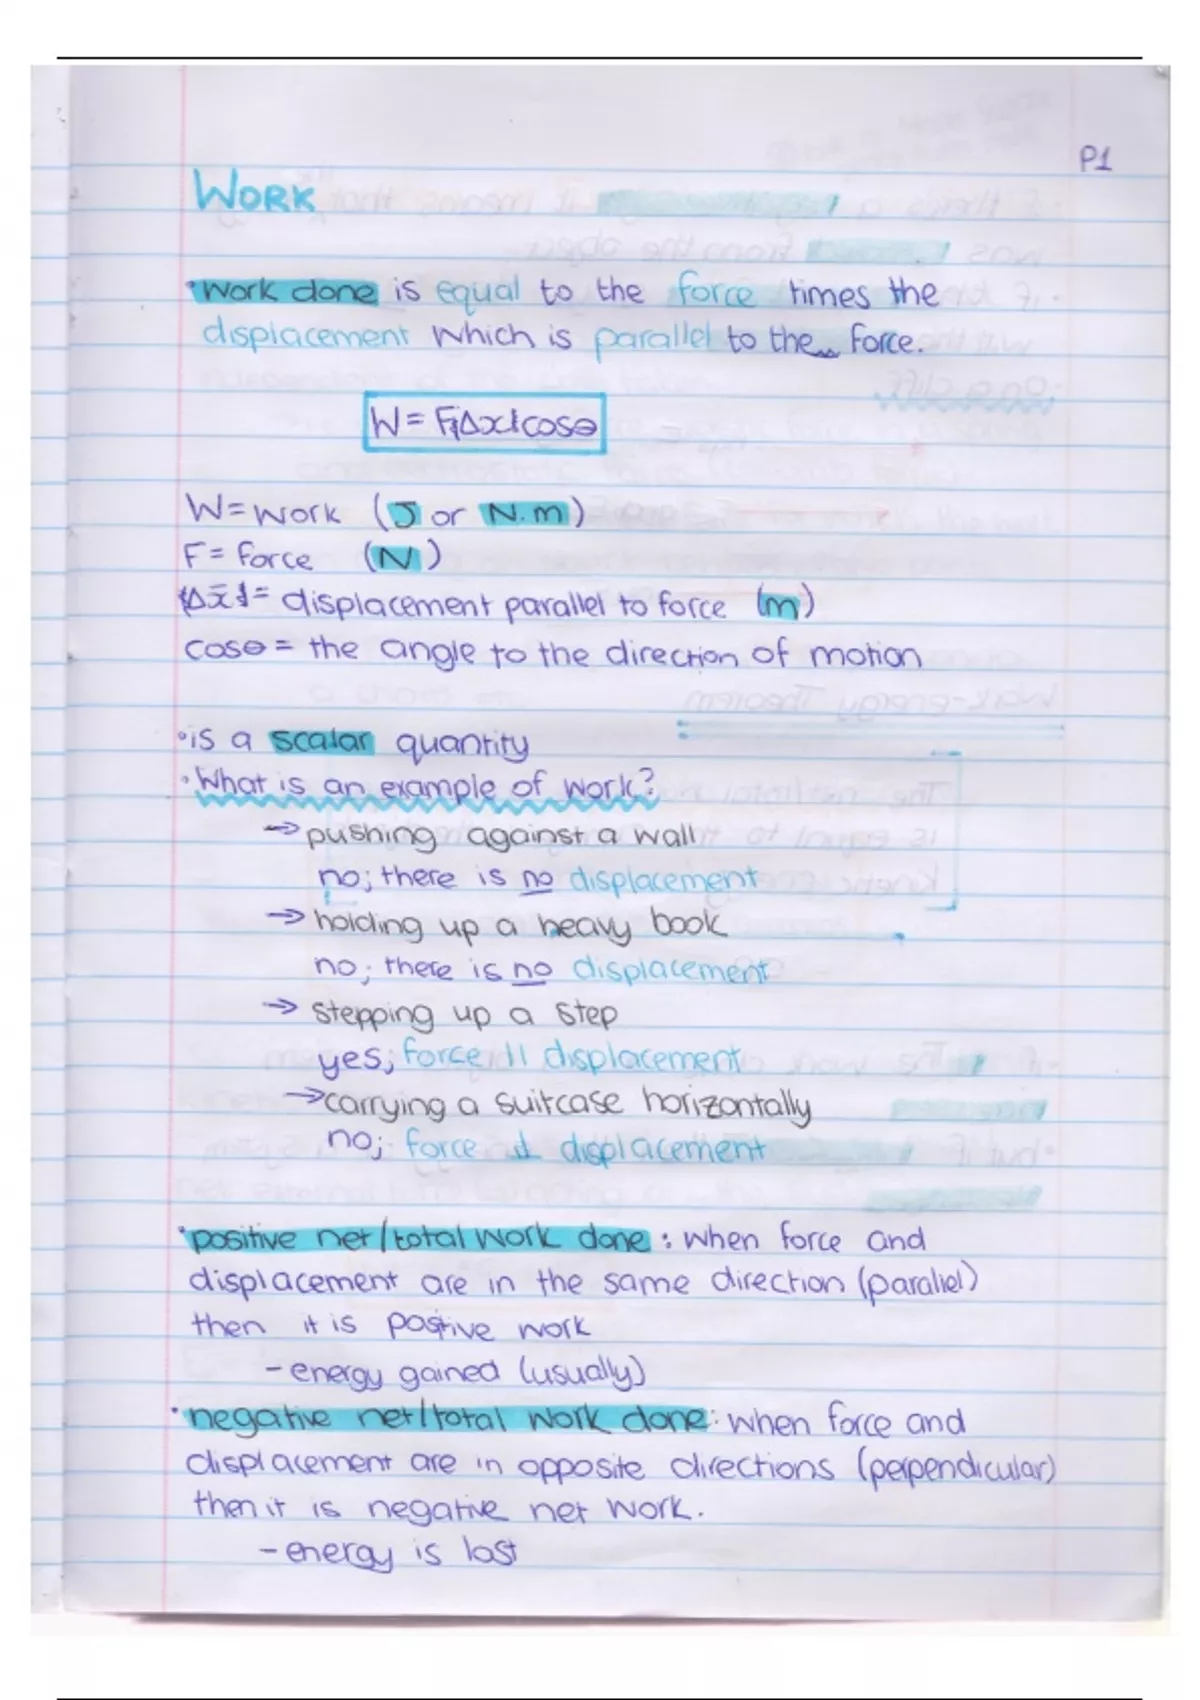 P1
WORK
•work done is equal to the force times the
displacement which is parallel to the force.
W = F|Δx|cosθ
W = work (J or N.m)
F = force (N)
|Δx̄| = displacement parallel to force (m)
cosθ = the angle to the direction of motion
•is a scalar quantity
•What is an example of work?
→ pushing against a wall
no; there is no displacement
→ holding up a heavy book
no; there is no displacement
→ stepping up a step
yes; force || displacement
→ carrying a suitcase horizontally
no; force ⊥ displacement
•positive net/total work done: when force and
displacement are in the same direction (parallel)
then it is positive work
- energy gained (usually)
•negative net/total work done: when force and
displacement are in opposite directions (perpendicular)
then it is negative net work.
- energy is lost